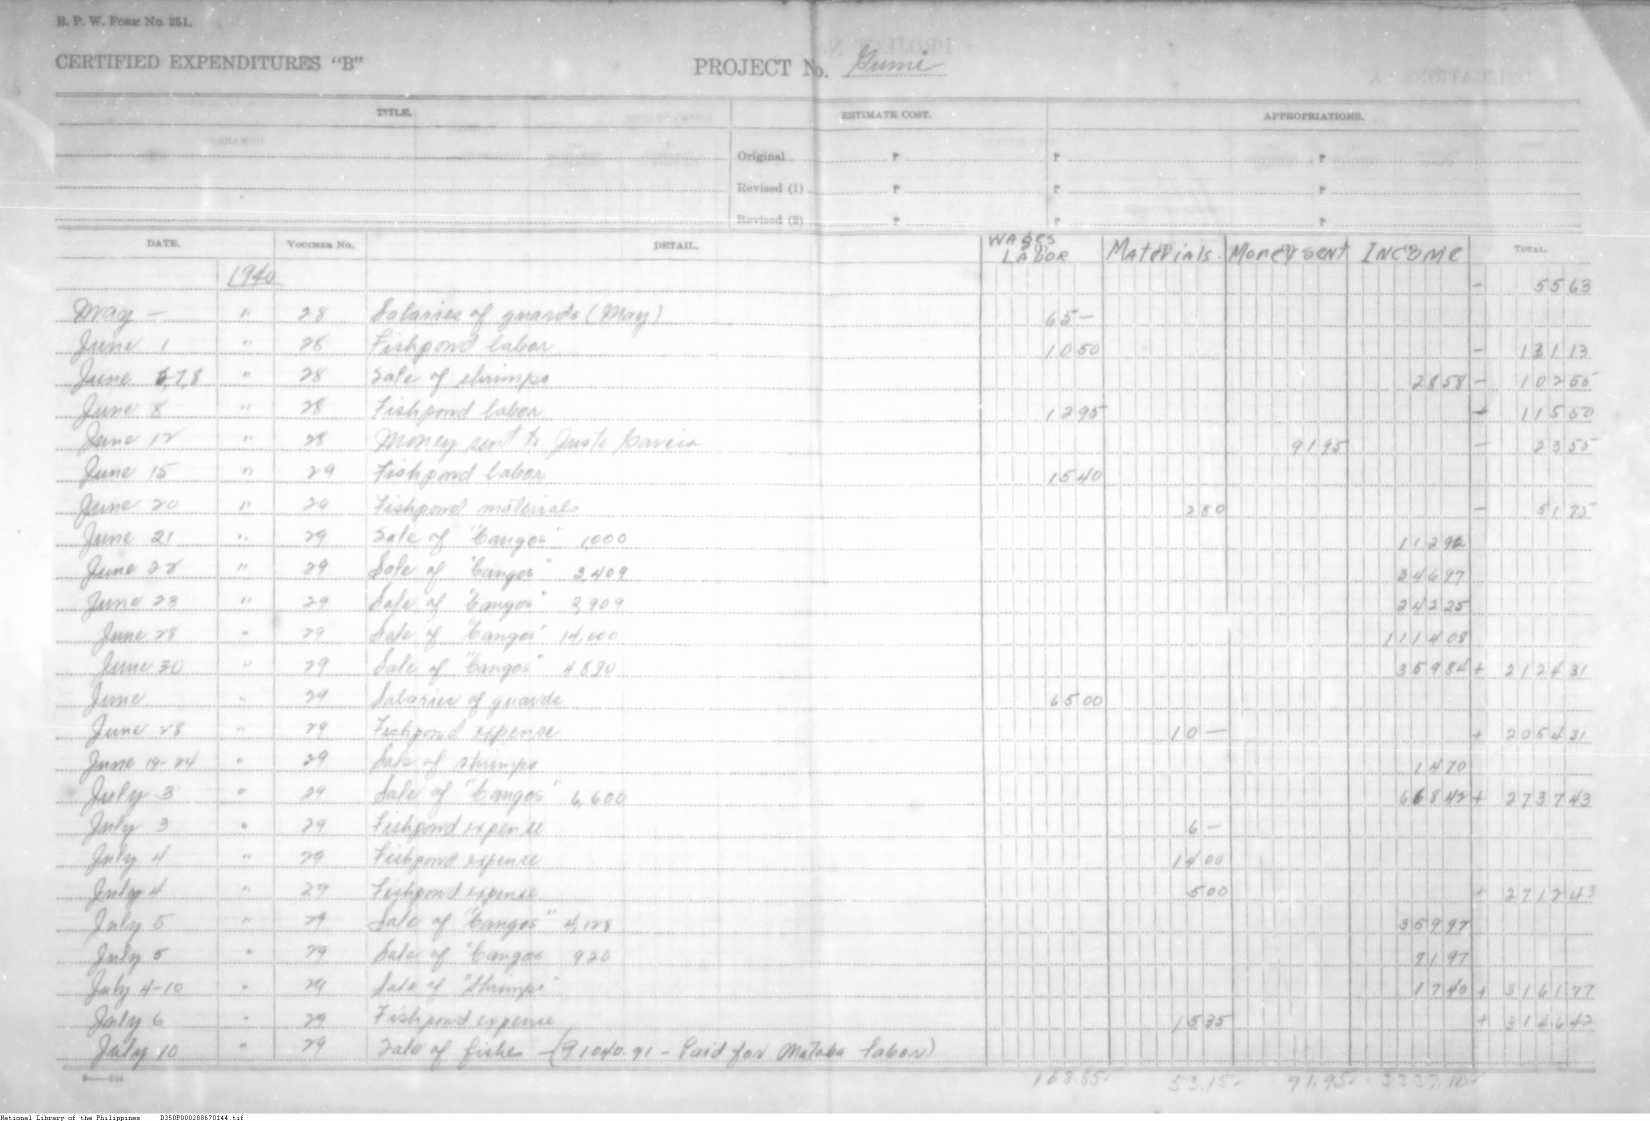 B. P. W. Form No. 251.
CERTIFIED EXPENDITURES "B" PROJECT No. Gumi
TITLE. ESTIMATE COST. APPROPRIATIONS.
Original ₱ ₱ ₱
Revised (1) ₱ ₱ ₱
Revised (2) ₱ ₱ ₱
DATE. VOUCHER No. DETAIL. WAGES LABOR Materials. Money sent INCOME TOTAL
1940 - 5563
May — " 28 Salaries of guards (May) 65 —
June 1 " 28 Fishpond labor 1050 - 13113
June 6,7,8 " 28 Sale of shrimps 2858 - 10255
June 8 " 28 Fishpond labor 1295 - 11550
June 12 " 28 Money sent to Justo Garcia 9195 - 2355
June 15 " 29 Fishpond labor 1540
June 20 " 29 Fishpond materials 280 - 5175
June 21 " 29 Sale of "Bangos" 1,000 11292
June 22 " 29 Sale of "Bangos" 3,409 34697
June 23 " 29 Sale of "Bangos" 3,909 24225
June 28 " 29 Sale of "Bangos" 14,000 111408
June 30 " 29 Sale of "Bangos" 4890 35984 + 212431
June " 29 Salaries of guards 6500
June 28 " 29 Fishpond expense 10 — + 205431
June 19-24 " 29 Sale of shrimps 1470
July 3 " 29 Sale of "Bangos" 6,600 66842 + 273743
July 3 " 29 Fishpond expense 6 —
July 4 " 29 Fishpond expense 1400
July 4 " 29 Fishpond expense 500 + 271243
July 5 " 29 Sale of "Bangos" 4,128 35997
July 5 " 29 Sale of "Bangos 920 7197
July 4-10 " 29 Sale of "Shrimps" 1740 + 316177
July 6 " 29 Fishpond expense 1535 + 314642
July 10 " 29 Sale of fishes - (₱1040.91 - Paid for Mataba labor)
168.85 53.15 91.95 3337.10
National Library of the Philippines D350P000288670144.tif